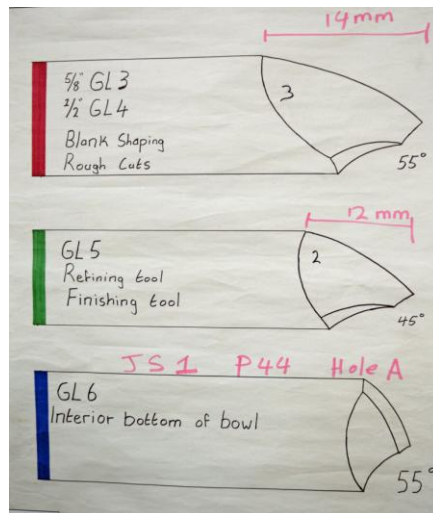 14mm
5/8" GL3
1/2" GL4
Blank Shaping
Rough Cuts
3
55°
12 mm
GL5
Refining tool
Finishing tool
2
45°
JS1 P44 Hole A
GL6
Interior bottom of bowl
55°